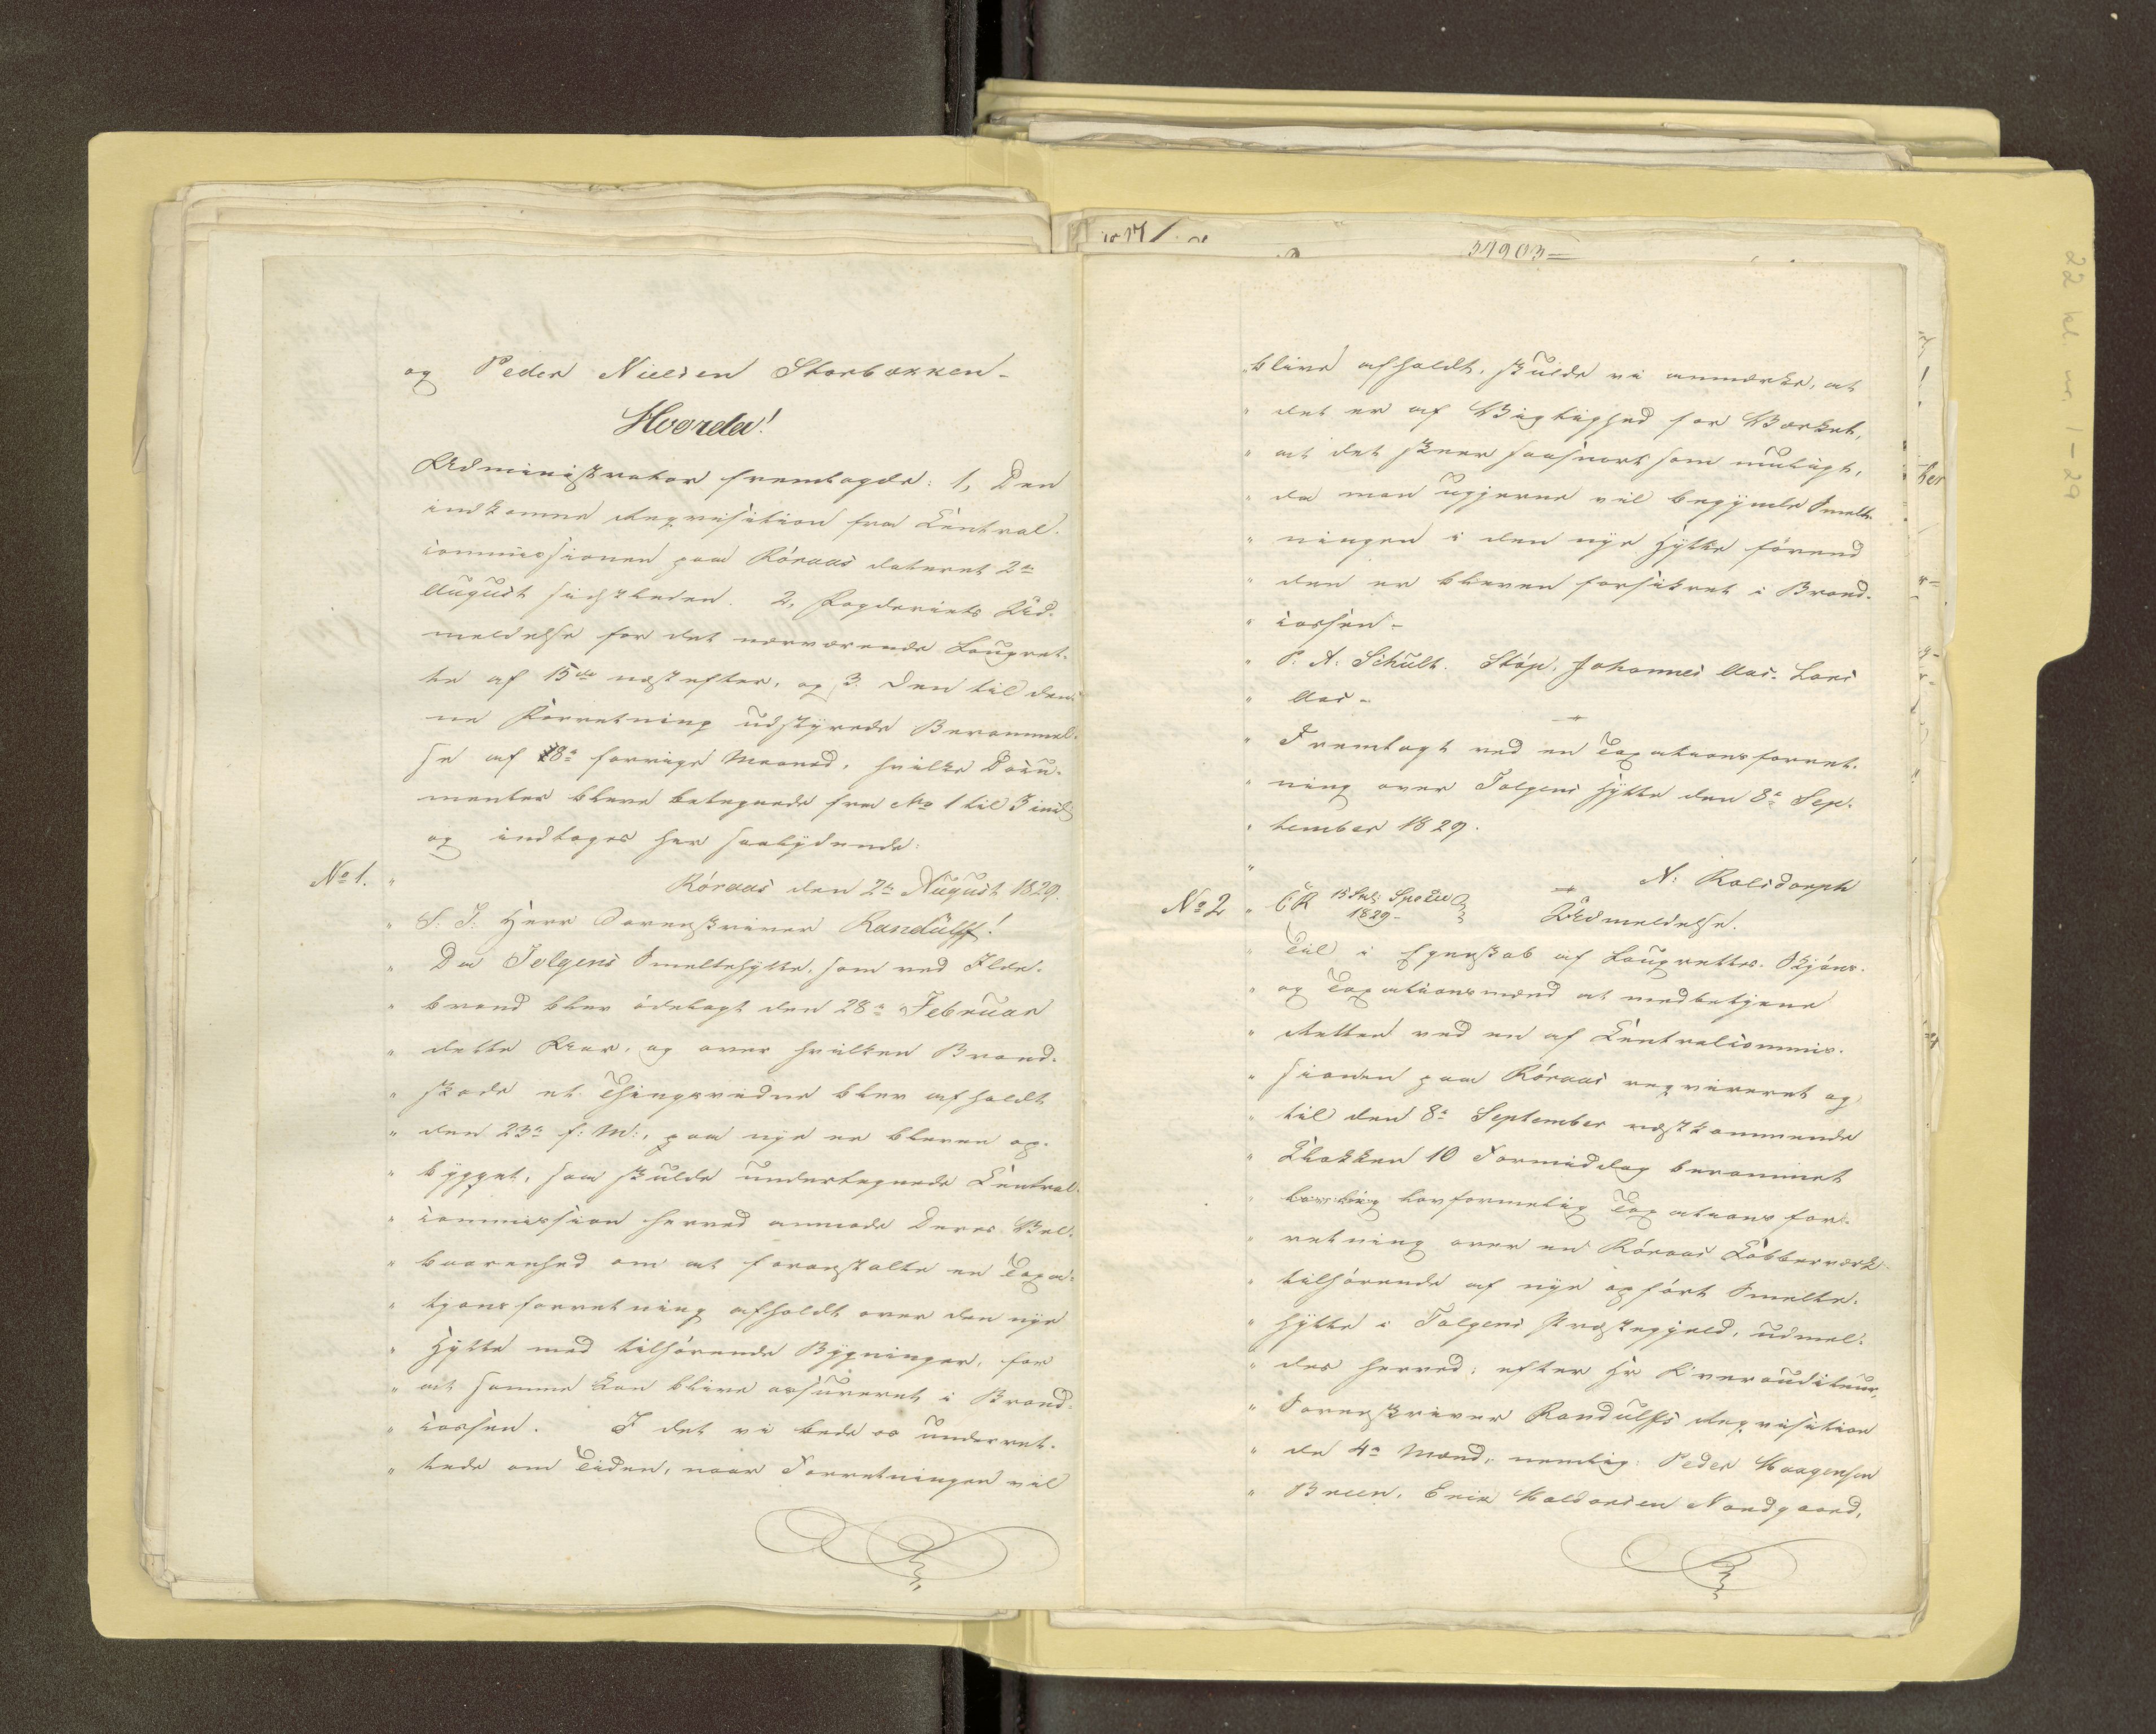 og Peder Nielsen Storbækken-
Hvorda!
Administrator fremlagde: 1, Den
indkomne Reqvisition fra Central-
commissionen paa Röraas dateret 2de
August sidstleden. 2, Fogderiets Ud-
meldelse for det nærværende Laugret-
te af 15de næstefter, og 3. Den til den-
ne Forretning udstyrede Berammel-
se af 18de forrige Maaned, hvilke Docu-
menter bleve betegnede fra No 1 til 3 incl
og indtages her saalydende:
No 1. " Röraas den 2de August 1829.
" S. T. Herr Sorenskriver Randulff!
" Da Tolgens Smeltehytte, som ved Ilde-
" brand blev ödelagt den 28de Februar
" dette Aar, og over hvilken Brand-
" skade et Thingsvidne blev afholdt
" den 23de f: M:, paa nye er bleven op-
" bygget, saa skulde undertegnede Central-
" commission herved anmode Deres Vel-
" baarenhed om at foranstalte en Taxa-
" tjonsforretning afholdt over den nye
" Hytte med tilhörende Bygninger, for
" at samme kan blive assureret i Brand-
" cassen. I det vi bede os underret-
" tede om Tiden, naar Forretningen vil
" blive afholdt, skulde vi anmærke, at
" det er af Vigtighed for Værket,
" at det skeer saasnart som muligt,
" da man ugjerne vil begynde Smelt-
" ningen i den nye Hytte förend
" den er bleven forsikret i Brand-
" cassen-
" P. A. Schult. Stöp. Johannes Aas. Lars
" Aas-
" Fremlagt ved en Taxationsforret-
" ning over Tolgens Hytte den 8de Sep-
" tember 1829.
" N: Rolsdorph
No 2 " CR 15 Sk: Species
1829- Udmeldelse.
" Til i Egenskab af Laugrettes- Skjöns-
" og Taxationsmænd at medbetjene
" Retten ved en af Centralcommis-
" sionen paa Röraas reqvireret og
" til den 8de September næstkommende
" Klokken 10 Formiddag berammet
" lovformelig Taxationsfor-
" retning over en Röraas Kobberværk
" tilhörende af nye opfört Smelte-
" hytte i Tolgens Præstegjeld, udmel-
" des herved, efter Hr Overauditeur,
" Sorenskriver Randulffs Reqvisition
" de 4de Mænd, nemlig: Peder Haagensen
" Breen, Erik Haldorsen Nordgaard,
34903=
22 kl nr 1-29